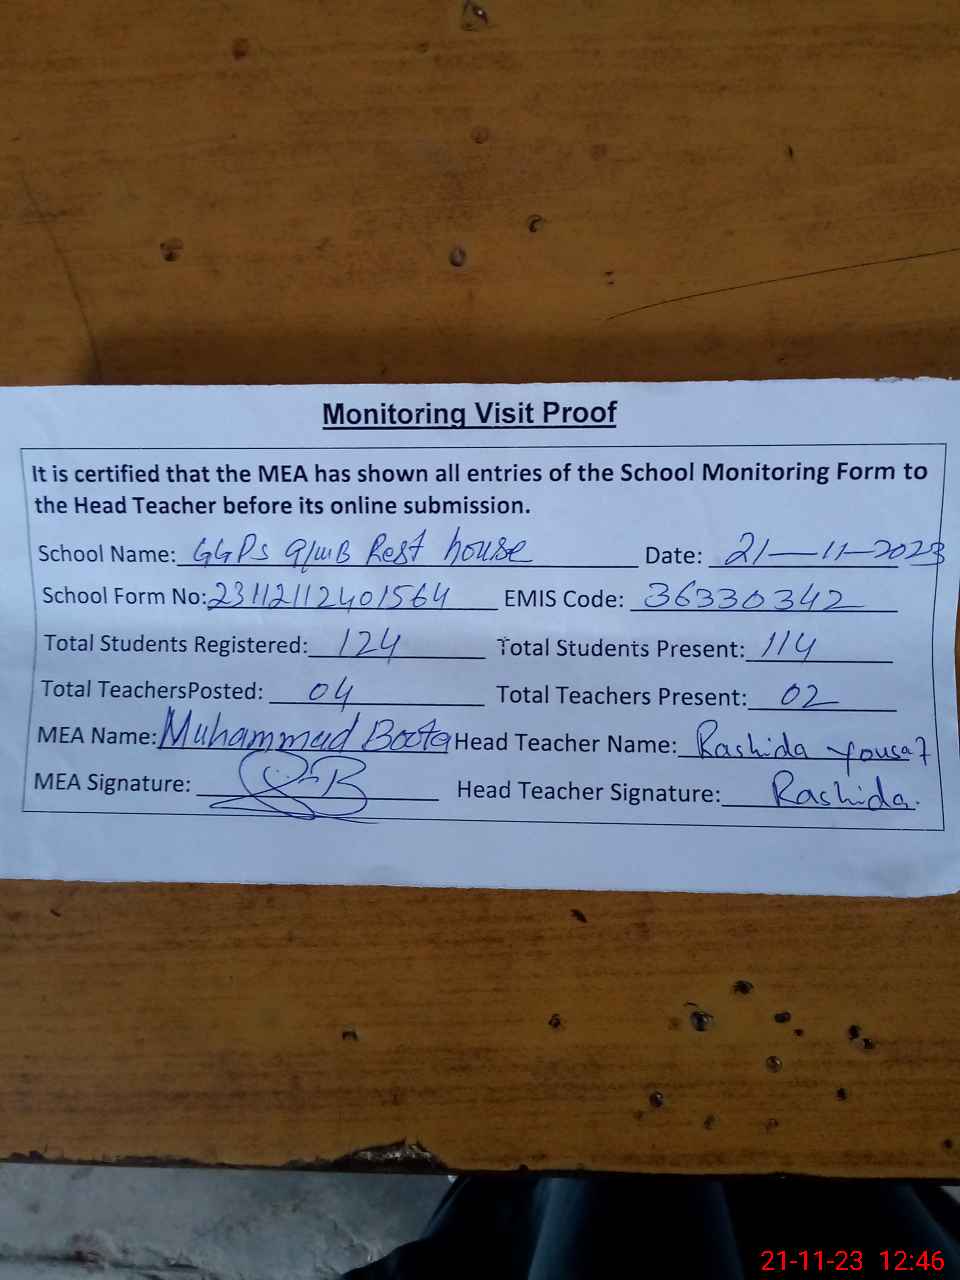 Monitoring Visit Proof
It is certified that the MEA has shown all entries of the School Monitoring Form to
the Head Teacher before its online submission.
School Name: GGPS 9/WB Rest house Date: 21-11-2023
School Form No: 23112112401564 EMIS Code: 36330342
Total Students Registered: 124 Total Students Present: 114
Total TeachersPosted: 04 Total Teachers Present: 02
MEA Name: Muhammad Boota Head Teacher Name: Rashida Yousaf
MEA Signature: Head Teacher Signature: Rashida.
21-11-23 12:46